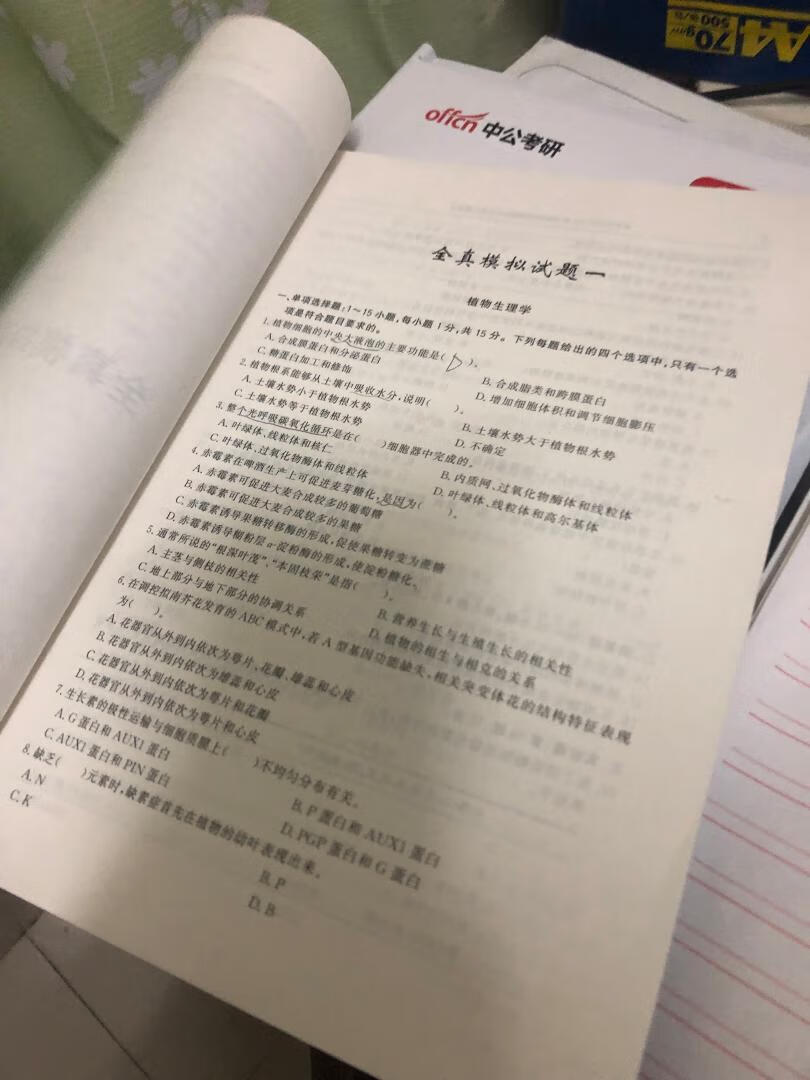 A4
70g/m²
500
offcn 中公考研
全真模拟试题一
植物生理学
一、单项选择题:1~15小题,每小题1分,共15分。下列每题给出的四个选项中,只有一个选
项是符合题目要求的。
1. 植物细胞的中央大液泡的主要功能是( D )。
A. 合成膜蛋白和分泌蛋白 B. 合成脂类和跨膜蛋白
C. 糖蛋白加工和修饰 D. 增加细胞体积和调节细胞膨压
2. 植物根系能够从土壤中吸收水分,说明( )。
A. 土壤水势小于植物根水势 B. 土壤水势大于植物根水势
C. 土壤水势等于植物根水势 D. 不确定
3. 整个光呼吸碳氧化循环是在( )细胞器中完成的。
A. 叶绿体、线粒体和核仁 B. 内质网、过氧化物酶体和线粒体
C. 叶绿体、过氧化物酶体和线粒体 D. 叶绿体、线粒体和高尔基体
4. 赤霉素在啤酒生产上可促进麦芽糖化,是因为( )。
A. 赤霉素可促进大麦合成较多的葡萄糖
B. 赤霉素可促进大麦合成较多的果糖
C. 赤霉素诱导果糖转移酶的形成,促使果糖转变为蔗糖
D. 赤霉素诱导糊粉层α-淀粉酶的形成,使淀粉糖化。
5. 通常所说的“根深叶茂”、“本固枝荣”是指( )。
A. 主茎与侧枝的相关性 B. 营养生长与生殖生长的相关性
C. 地上部分与地下部分的协调关系 D. 植物的相生与相克的关系
6. 在调控拟南芥花发育的ABC模式中,若A型基因功能缺失,相关突变体花的结构特征表现
为( )。
A. 花器官从外到内依次为萼片、花瓣、雄蕊和心皮
B. 花器官从外到内依次为雄蕊和心皮
C. 花器官从外到内依次为萼片和花瓣
D. 花器官从外到内依次为萼片和心皮
7. 生长素的极性运输与细胞质膜上( )不均匀分布有关。
A. G蛋白和AUX1蛋白 B. P蛋白和AUX1蛋白
C. AUX1蛋白和PIN蛋白 D. PGP蛋白和G蛋白
8. 缺乏( )元素时,缺素症首先在植物的幼叶表现出来。
A. N B. P
C. K D. B